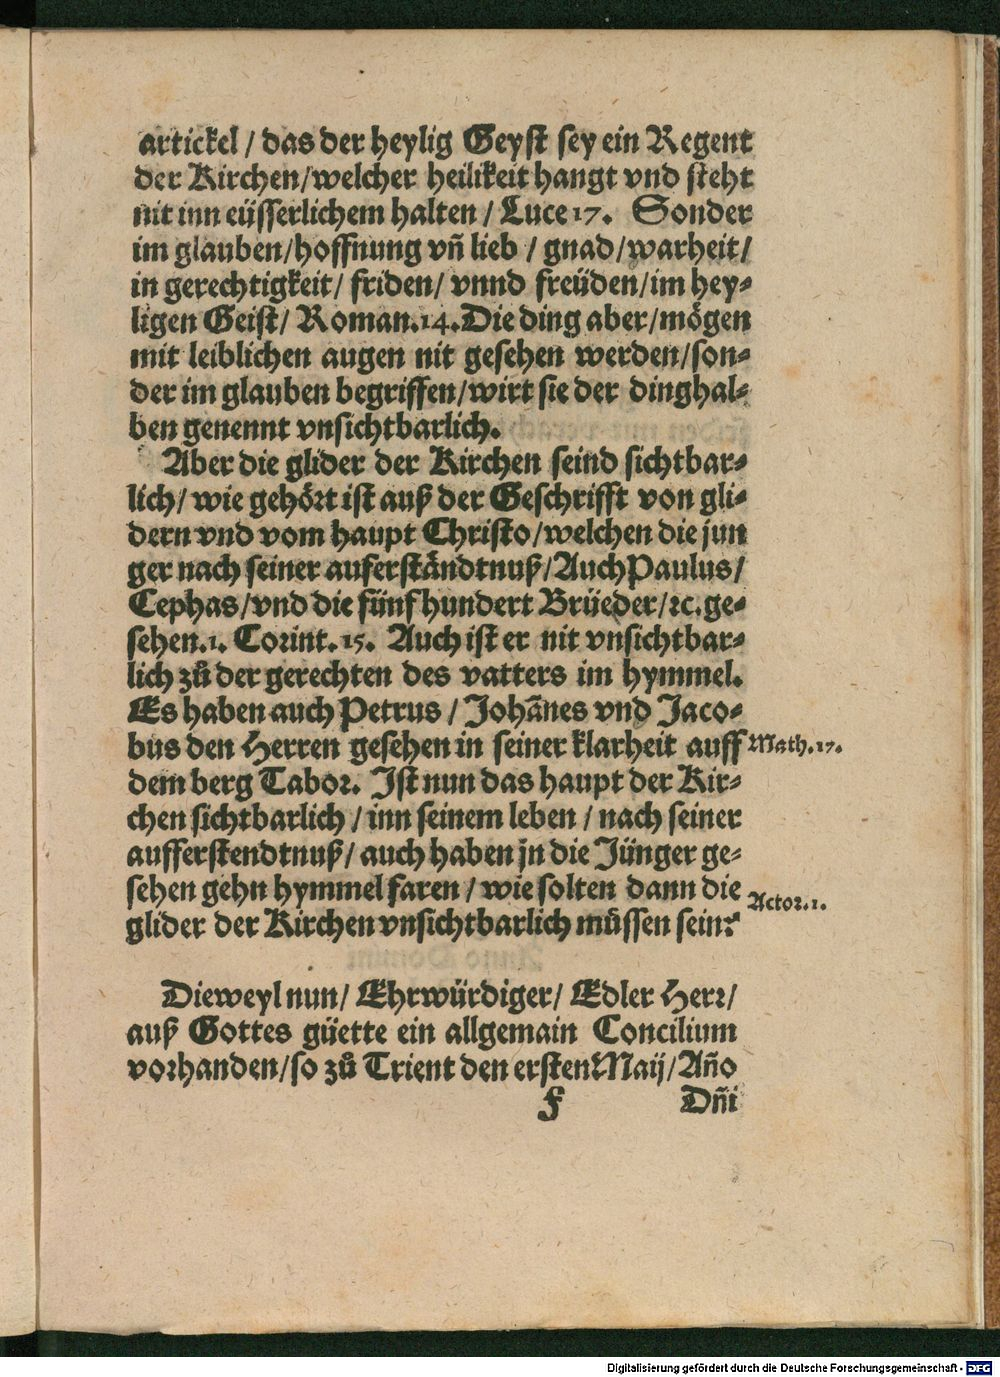 artickel / das der heylig Geyst sey ein Regent
der Kirchen/welcher heilikeit hangt vnd steht
nit inn eüsserlichem halten / Luce 17. Sonder
im glauben/hoffnung vñ lieb / gnad/warheit/
in gerechtigkeit/ friden/ vnnd freüden/im hey-
ligen Geist/ Roman.14.Die ding aber/mögen
mit leiblichen augen nit gesehen werden/son-
der im glauben begriffen/wirt sie der dinghal-
ben genennt vnsichtbarlich.
Aber die glider der Kirchen seind sichtbar-
lich/ wie gehört ist auß der Geschrifft von gli-
dern vnd vom haupt Christo/welchen die jun
ger nach seiner auferständtnuß/Auch Paulus/
Cephas/vnd die fünf hundert Brüeder/ꝛc.ge-
sehen.1. Corint.15. Auch ist er nit vnsichtbar-
lich zů der gerechten des vatters im hymmel.
Es haben auch Petrus / Johãnes vnd Jaco-
bus den Herren gesehen in seiner klarheit auff
Math.17.
dem berg Tabor. Ist nun das haupt der Kir-
chen sichtbarlich / inn seinem leben / nach seiner
aufferstendtnuß/ auch haben jn die Jünger ge-
sehen gehn hymmel faren / wie solten dann die
Actor.1.
glider der Kirchen vnsichtbarlich müssen sein?
Dieweyl nun/ Ehrwürdiger/ Edler Herr/
auß Gottes güette ein allgemain Concilium
vorhanden/so zů Trient den ersten Maij/Año
F Dñi
Digitalisierung gefördert durch die Deutsche Forschungsgemeinschaft - DFG